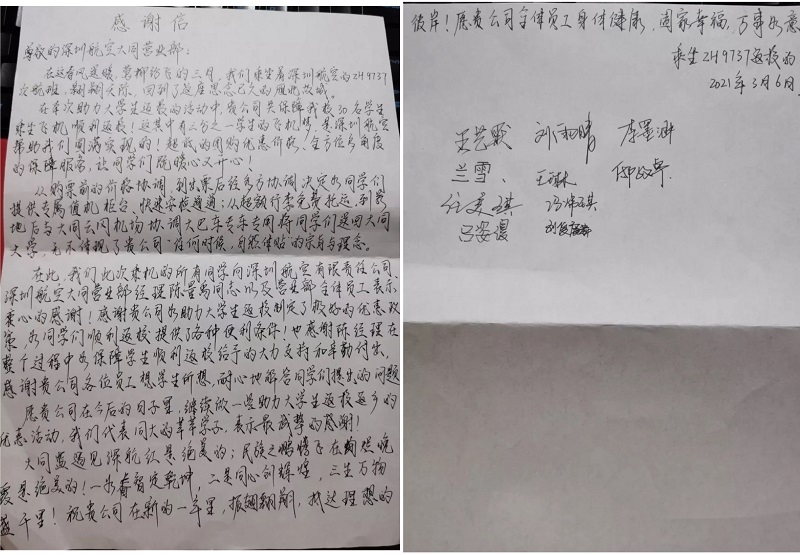 感谢信
尊敬的深圳航空大同营业部：
在这春风送暖、草柳纷飞的三月，我们乘坐着深圳航空的ZH9737
次航班，翱翔天际，回到了这座思念已久的雁北故城。
在本次助力大学生返校的活动中，贵公司共保障我校30名学生
乘坐飞机顺利返校！这其中有三分之一学生的飞机梦，是深圳航空
帮助我们圆满实现的！超级的团购优惠价格、全方位多角度
的保障服务，让同学们既暖心又开心！
从购票前的价格协调，到出票后经多方协调，决定为同学们
提供专属值机柜台、快速安检通道；从超额行李免费托运，到落
地后与大同云冈机场协调大巴车专车专用将同学们送回大同
大学，无不体现了贵公司"任何时候，自然体贴"的宗旨与理念。
在此，我们此次乘机的所有同学向深圳航空有限责任公司、
深圳航空大同营业部经理陈同志以及营业部全体员工表示
衷心的感谢！感谢贵公司为助力大学生返校制定了极好的优惠政
策，为同学们顺利返校提供了各种便利条件！也感谢陈经理在
整个过程中为保障学生顺利返校给予的大力支持和辛勤付出，
感谢贵公司各位员工想学生所想，耐心地解答同学们提出的问题
愿贵公司在今后的日子里，继续做一些助力大学生返校返乡的
优惠活动，我们代表同大的莘莘学子，表示最诚挚的感谢！
大同蓝遇见深航红是绝美的；民族之鹏腾飞在绚烂晚
霞是绝美的！一为睿智定乾坤，二是同心创辉煌，三生万物
益千里！祝贵公司在新的一年里，振翅翱翔，抵达理想的
彼岸！愿贵公司全体员工身体健康，阖家幸福，万事如意
乘坐ZH9737返校的
2021年3月6日
刘雨晴
兰雪、王琳
吕姿漫